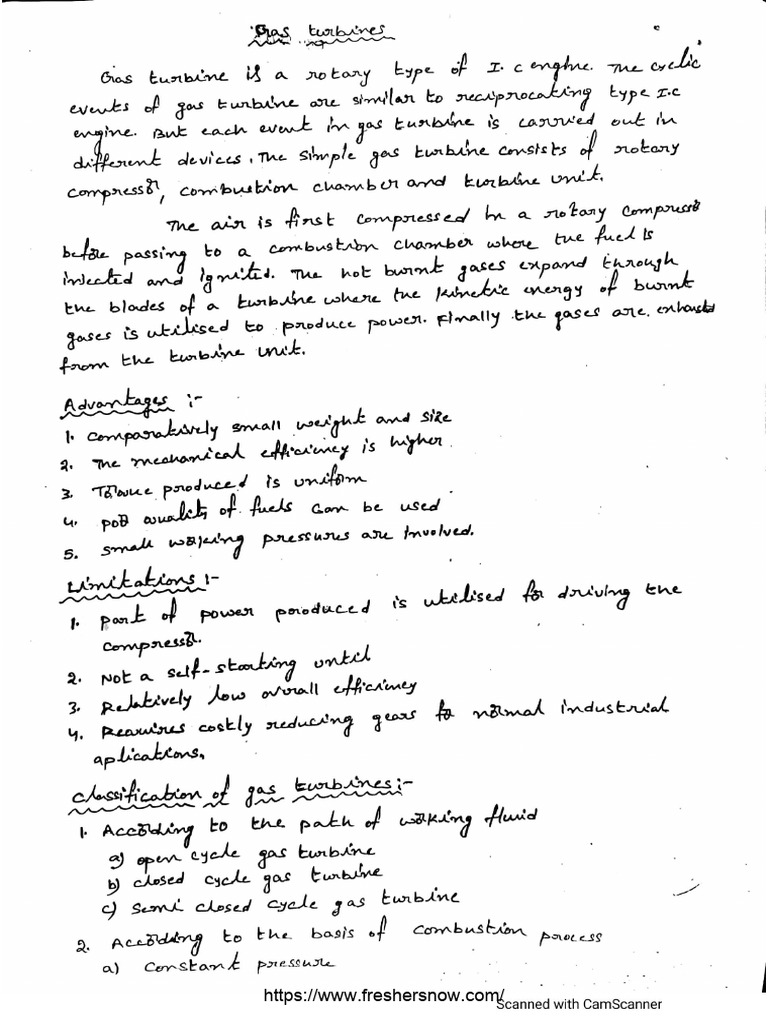 Gas turbines
Gas turbine is a rotary type of I.C engine. The cyclic
events of gas turbine are similar to reciprocating type I.C
engine. But each event in gas turbine is carried out in
different devices. The simple gas turbine consists of rotary
compressor, combustion chamber and turbine unit.
The air is first compressed in a rotary compressor
before passing to a combustion chamber where the fuel is
injected and ignited. The hot burnt gases expand through
the blades of a turbine where the kinetic energy of burnt
gases is utilised to produce power. Finally the gases are exhausted
from the turbine unit.
Advantages :-
1. Comparatively small weight and size
2. The mechanical efficiency is higher
3. Torque produced is uniform
4. poor quality of fuels can be used
5. Small working pressures are involved.
Limitations :-
1. Part of power produced is utilised for driving the
compressor.
2. Not a self-starting until
3. Relatively low overall efficiency
4. Requires costly reducing gears for normal industrial
aplications.
Classification of gas turbines:-
1. According to the path of working fluid
a) open cycle gas turbine
b) closed cycle gas turbine
c) Semi closed cycle gas turbine
2. According to the basis of combustion process
a) constant pressure
https://www.freshersnow.com/
Scanned with CamScanner